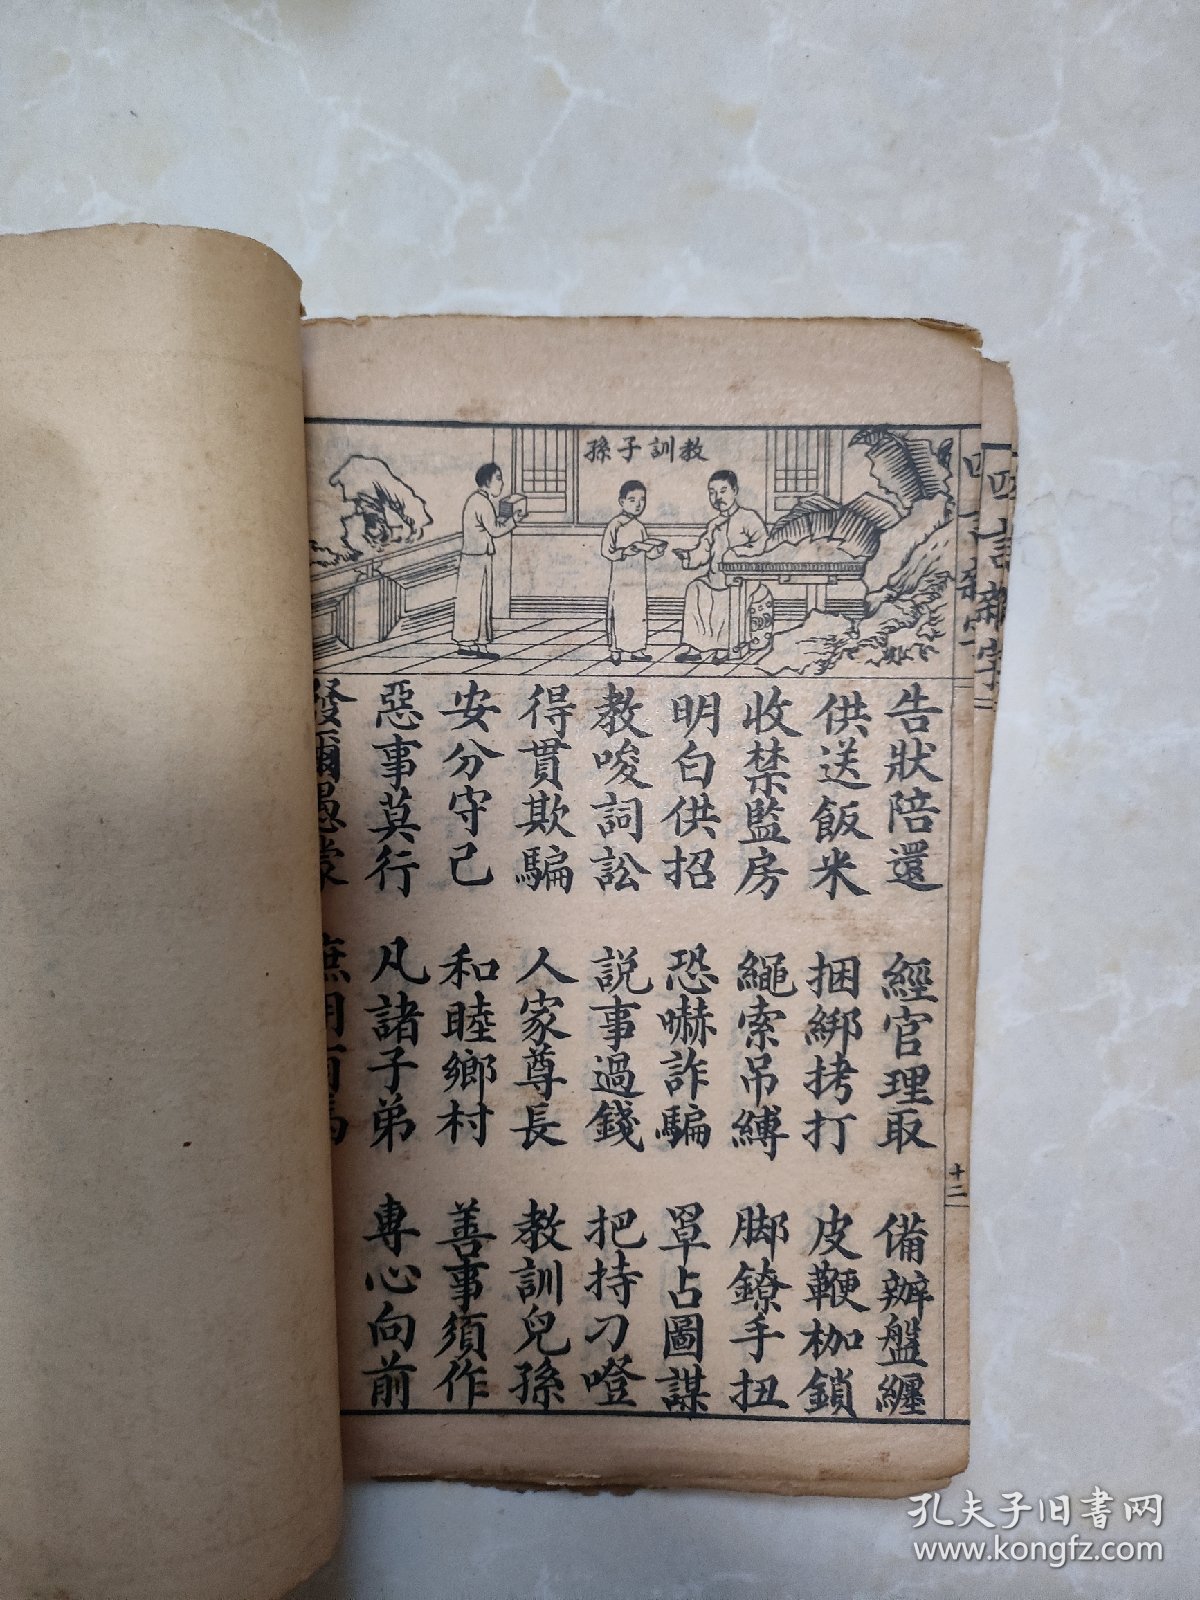 教訓子孫
四言雜字
告狀陪還 經官理取 備辦盤纏
供送飯米 捆綁拷打 皮鞭枷鎖
收禁監房 繩索吊縛 脚鐐手扭
明白供招 恐嚇詐騙 罩占圖謀
教唆詞訟 説事過錢 把持刁噔
得貫欺騙 人家尊長 教訓兒孫
安分守己 和睦鄉村 善事須作
惡事莫行 凡諸子弟 專心向前
發爾愚蒙
十二
孔夫子旧书网
www.kongfz.com